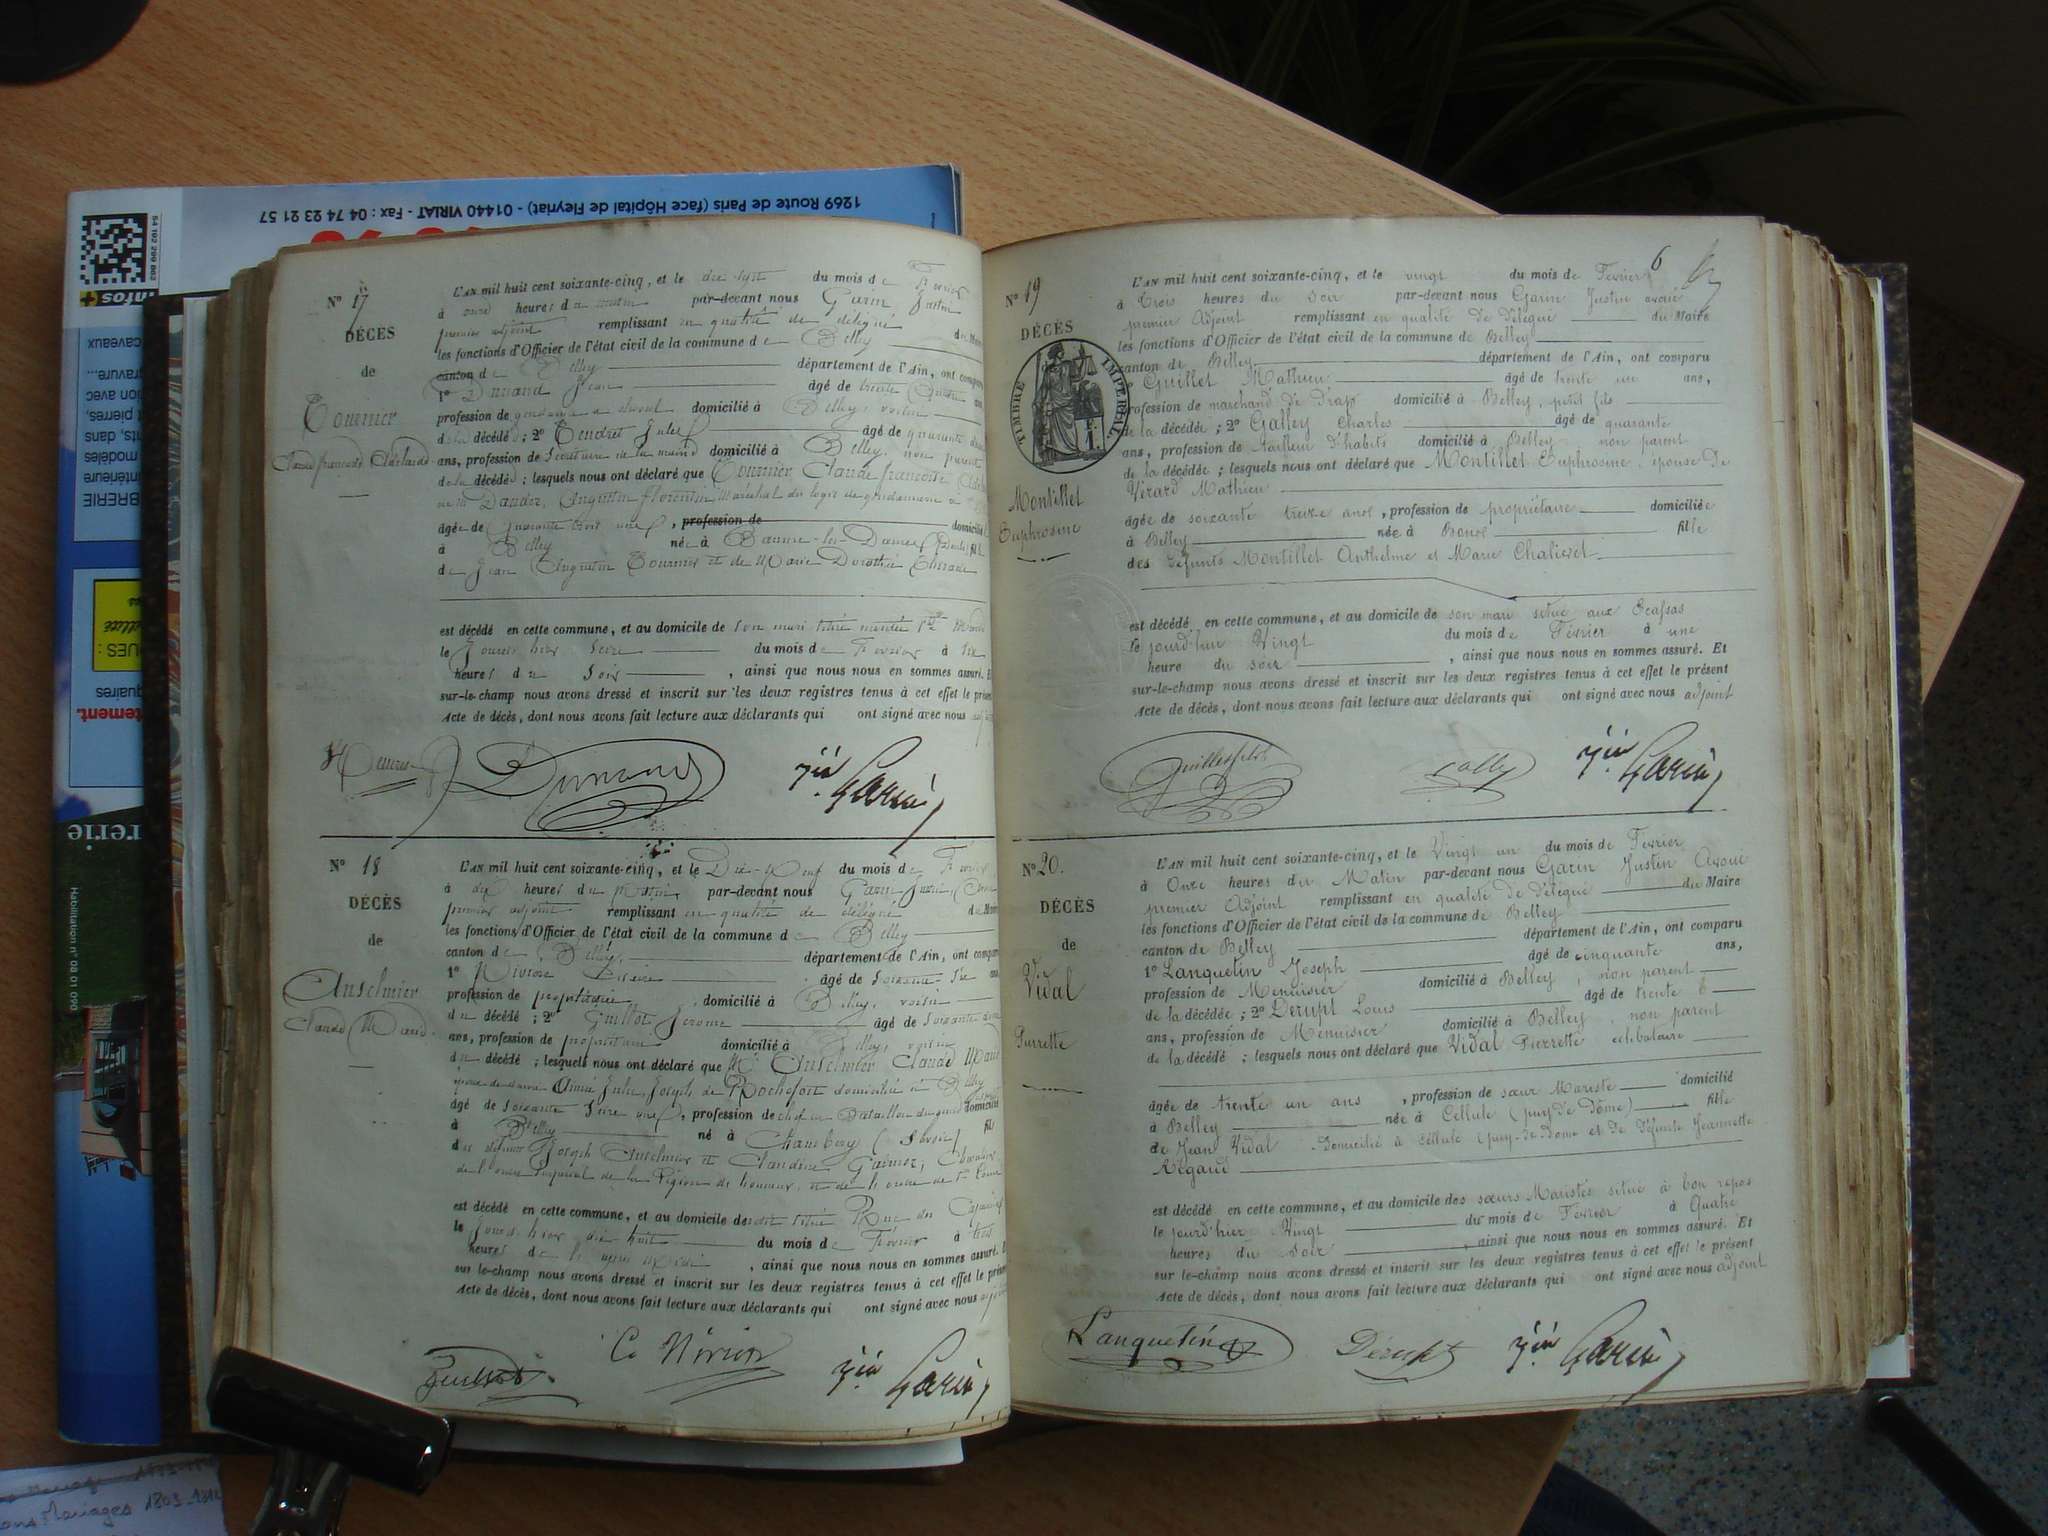 1269 Route de Paris (face Hôpital de Fleyriat) - 01440 VIRIAT - Fax : 04 74 23 21 57
54 192 299 862
infos
caveaux
gravure...
tion avec
t pierres,
nts, dans
modèles
intérieure
BRERIE
QUES :
quaires
tement.
rerie
Habilitation n° 08 01 090
N° 17
DÉCÈS
de
Tournier
Claude françoise Adélaïde
L'AN mil huit cent soixante-cinq, et le dix sept du mois de Février
à onze heures du matin par-devant nous Garin Justin
premier adjoint remplissant en qualité de délégué du Maire
les fonctions d'Officier de l'état civil de la commune de Belley
canton de Belley département de l'Ain, ont comparu
1° Dumand Jean âgé de trente ans
profession de gendarme à cheval domicilié à Belley, voisin
de la décédée ; 2° Tendret Jules âgé de quarante
ans, profession de Secrétaire de la mairie domicilié à Belley, non parent
de la décédée ; lesquels nous ont déclaré que Tournier Claude françoise
Augustin florentin, Maréchal des logis de gendarmerie
âgée de quarante trois ans, profession de domiciliée
à Belley née à Baume-les-Dames (Doubs) fille
de Jean Augustin Tournier et de Marie Dorothée
est décédé en cette commune, et au domicile de son mari située
le Jourd'hier Seize du mois de Février à six
heures du soir, ainsi que nous nous en sommes assuré. Et
sur-le-champ nous avons dressé et inscrit sur les deux registres tenus à cet effet le présent
Acte de décès, dont nous avons fait lecture aux déclarants qui ont signé avec nous adjoint
Dumand Jin Garin
N° 18
DÉCÈS
de
Anselmier
Claude Marie
L'AN mil huit cent soixante-cinq, et le Dix-Neuf du mois de Février
à dix heures du Matin par-devant nous Garin Justin
premier adjoint remplissant en qualité de délégué du Maire
les fonctions d'Officier de l'état civil de la commune de Belley
canton de Belley département de l'Ain, ont comparu
1° Nivière âgé de Soixante ans
profession de propriétaire domicilié à Belley, voisin
du décédé ; 2° Guillot Jérome âgé de soixante
ans, profession de propriétaire domicilié à Belley, voisin
du décédé ; lesquels nous ont déclaré que Mr Anselmier Claude Marie
époux de dame Aimée Julie Joseph de Rochefort domiciliée à Belley
âgé de Soixante Seize ans, profession de chef de Bataillon domicilié
à Belley né à Chambéry (Savoie) fils
des défunts Joseph Anselmier et Claudine Gaimoz, Chevalier
de l'ordre Impérial de la Légion d'honneur, et de l'ordre de St Louis
est décédé en cette commune, et au domicile de située Rue des Capucins
le Jourd'hier dix huit du mois de Février à trois
heures de l'après Midi, ainsi que nous nous en sommes assuré. Et
sur-le-champ nous avons dressé et inscrit sur les deux registres tenus à cet effet le présent
Acte de décès, dont nous avons fait lecture aux déclarants qui ont signé avec nous adjoint
Jin Garin
6
N° 19
DÉCÈS
TIMBRE IMPÉRIAL
Montillet
Euphrosine
L'AN mil huit cent soixante-cinq, et le vingt du mois de Février
à Trois heures du Soir par-devant nous Garin Justin avoué
premier Adjoint remplissant en qualité de Délégué du Maire
les fonctions d'Officier de l'état civil de la commune de Belley
canton de Belley département de l'Ain, ont comparu
1° Guillet Mathieu âgé de trente un ans,
profession de marchand de Drap domicilié à Belley, petit fils
de la décédée ; 2° Galley Charles âgé de quarante
ans, profession de Tailleur d'habits domicilié à Belley non parent
de la décédée ; lesquels nous ont déclaré que Montillet Euphrosine, épouse De
Virard Mathieu
âgée de soixante treize ans, profession de propriétaire domiciliée
à Belley née à Bons fille
des défunts Montillet Anthelme et Marie Chalieret
est décédé en cette commune, et au domicile de son mari situé aux Ecassas
le jourd'hui Vingt du mois de Février à une
heure du soir, ainsi que nous nous en sommes assuré. Et
sur-le-champ nous avons dressé et inscrit sur les deux registres tenus à cet effet le présent
Acte de décès, dont nous avons fait lecture aux déclarants qui ont signé avec nous adjoint
Guillet fils Gally Jin Garin
N° 20.
DÉCÈS
de
Vidal
Pierrette
L'AN mil huit cent soixante-cinq, et le Vingt un du mois de Février
à Onze heures du Matin par-devant nous Garin Justin Avoué
premier Adjoint remplissant en qualité de Délégué du Maire
les fonctions d'Officier de l'état civil de la commune de Belley
canton de Belley département de l'Ain, ont comparu
1° Lanquetin Joseph âgé de cinquante ans,
profession de Menuisier domicilié à Belley, non parent
de la décédée ; 2° Derupt Louis âgé de trente 6
ans, profession de Menuisier domicilié à Belley, non parent
de la décédé ; lesquels nous ont déclaré que Vidal Pierrette célibataire
âgée de trente un ans, profession de sœur Mariste domicilié
à Belley née à Cellule (puy de Dôme) fille
de Jean Vidal Domicilié à Cellule (puy-de-Dome et de Défunte Jeannette
Régaud
est décédé en cette commune, et au domicile des sœurs Maristes situé à bon repos
le jourd'hier Vingt du mois de Février à Quatre
heures du Soir, ainsi que nous nous en sommes assuré. Et
sur le-champ nous avons dressé et inscrit sur les deux registres tenus à cet effet le présent
Acte de décès, dont nous avons fait lecture aux déclarants qui ont signé avec nous adjoint
Lanquetin Dérupt Jin Garin
Mariages 1803-1812